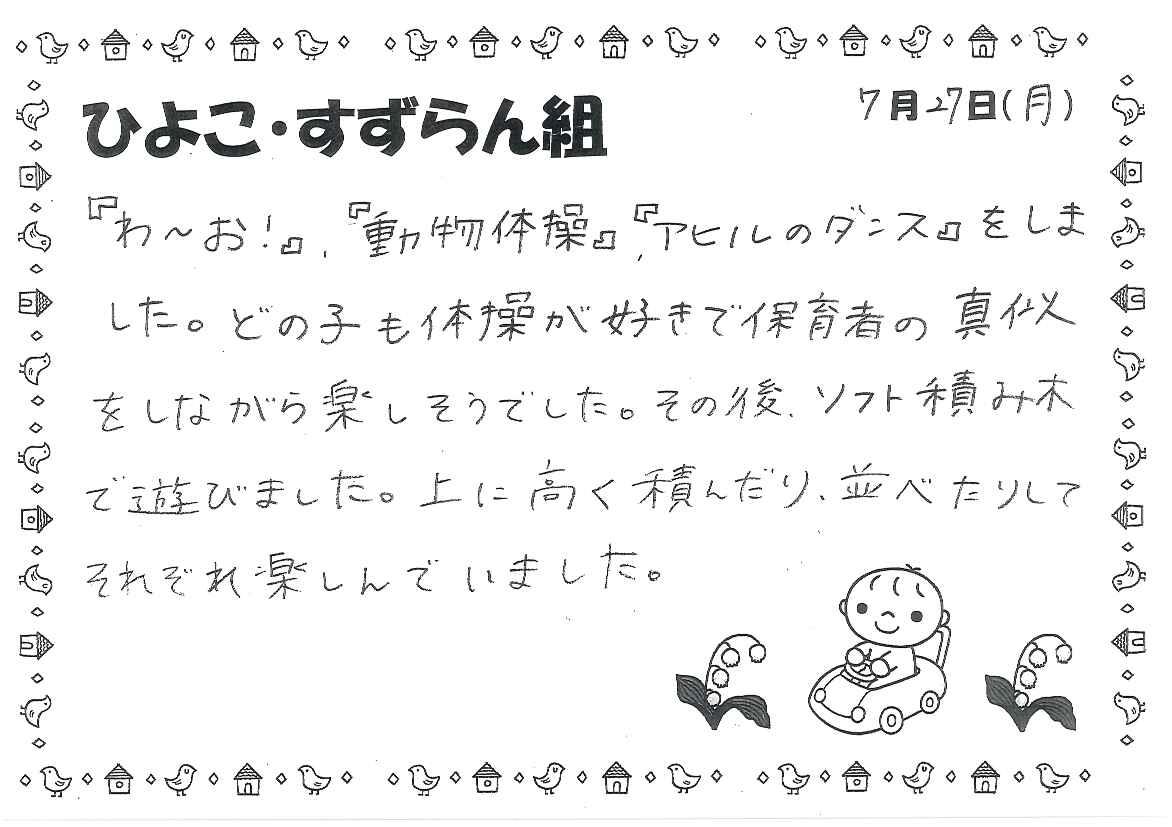 ひよこ・すずらん組
7月27日(月)
『わ～お!』、『動物体操』、『アヒルのダンス』をしま
した。どの子も体操が好きで保育者の真似
をしながら楽しそうでした。その後、ソフト積み木
で遊びました。上に高く積んだり、並べたりして
それぞれ楽しんでいました。